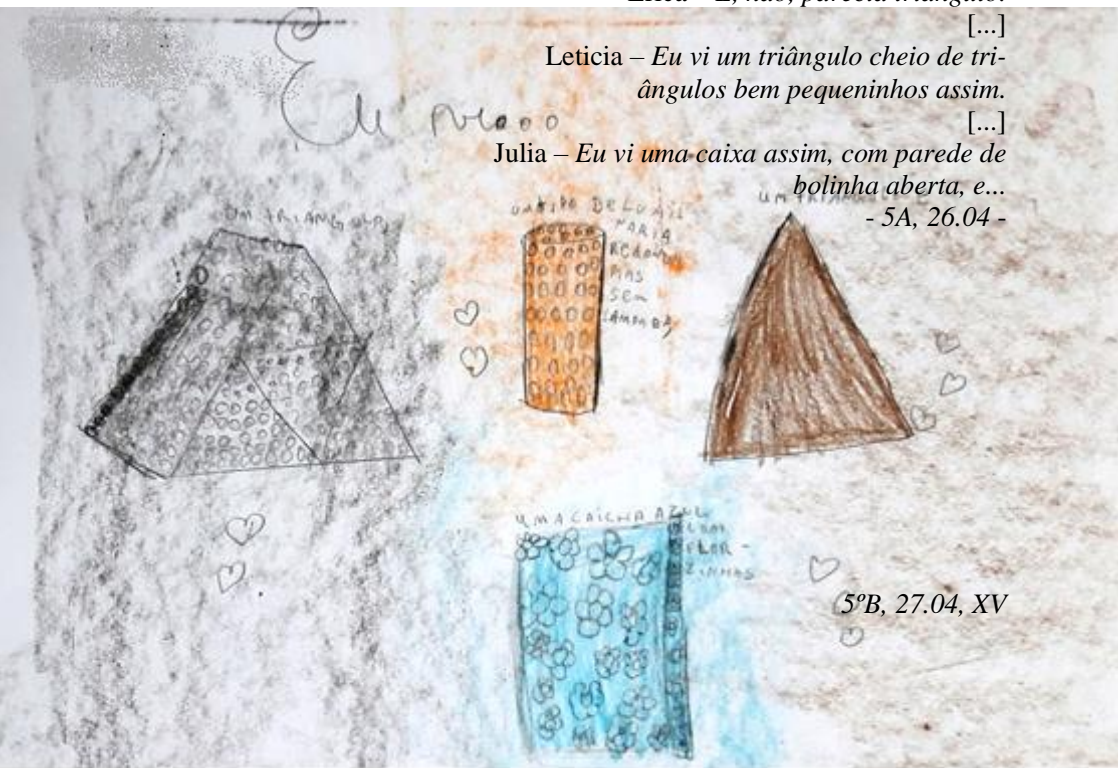 [...]
Leticia – Eu vi um triângulo cheio de tri-
ângulos bem pequeninhos assim.
[...]
Julia – Eu vi uma caixa assim, com parede de
bolinha aberta, e...
- 5A, 26.04 -
UM TRIANGULO
DE LUMI
NARIA
SEM
UM
UMA CAICHA AZUL
COM
FLOR-
ZINHAS
5ºB, 27.04, XV